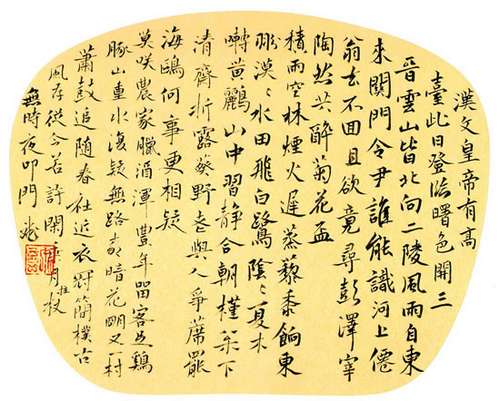 漢文皇帝有高
臺此日登臨曙色開三
晉雲山皆北向二陵風雨自東
來關門令尹誰能識河上僊
翁去不回且欲竟尋彭澤宰
陶然共醉菊花盃
積雨空林煙火遲蒸藜黍餉東
漠々水田飛白鷺陰々夏木
囀黃鸝山中習靜朝槿下
清齋折露葵野老與人爭席罷
海鷗何事更相疑
莫咲農家臘酒渾豐年留客足雞
豚山重水復疑無路柳暗花明又一村
簫鼓追隨春社近衣冠簡樸古
風存從今若許閑乘月拄杖
無時夜叩門